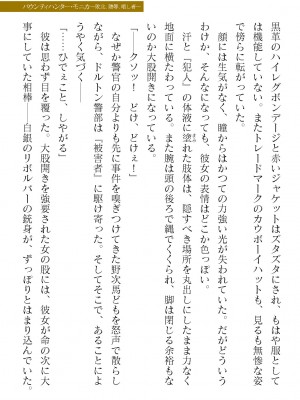 バウンティハンター・モニカ ―魔北、勝辱、晒し者―
黒革のハイレグボンデージと赤いジャケットはズタズタにされ、もはや服として
は機能していない。またトレードマークのカウボーイハットも、見るも無惨な姿
で傍らに転がっていた。
顔には生気がなく、瞳からはかつての力強い光が失われていた。だがどういう
わけか、そんなになっても、彼女の表情はどこか色っぽい。
汗と「犯人」の体液に塗れた肢体は、隠すべき場所を丸出しにしたまま力なく
地面に横たわっている。また腕は頭の後ろで縄でくくられ、脚は閉じる余裕もな
いのか大股開きになっている。
「――クソッ！　どけ、どけぇ！」
なぜか警官の自分よりも先に事件を嗅ぎつけてきた野次馬どもを怒声で散らし
ながら、ドルトン警部は「被害者」に駆け寄った。そしてそこで、あることによ
うやく気づく――
「……ひでぇこと、しやがる」
彼は思わず目を覆った。大股開きを強要された女の股には、彼女が命の次に大
事にしていた相棒――白銀のリボルバーの銃身が、ずっぽりとはまり込んでいた。